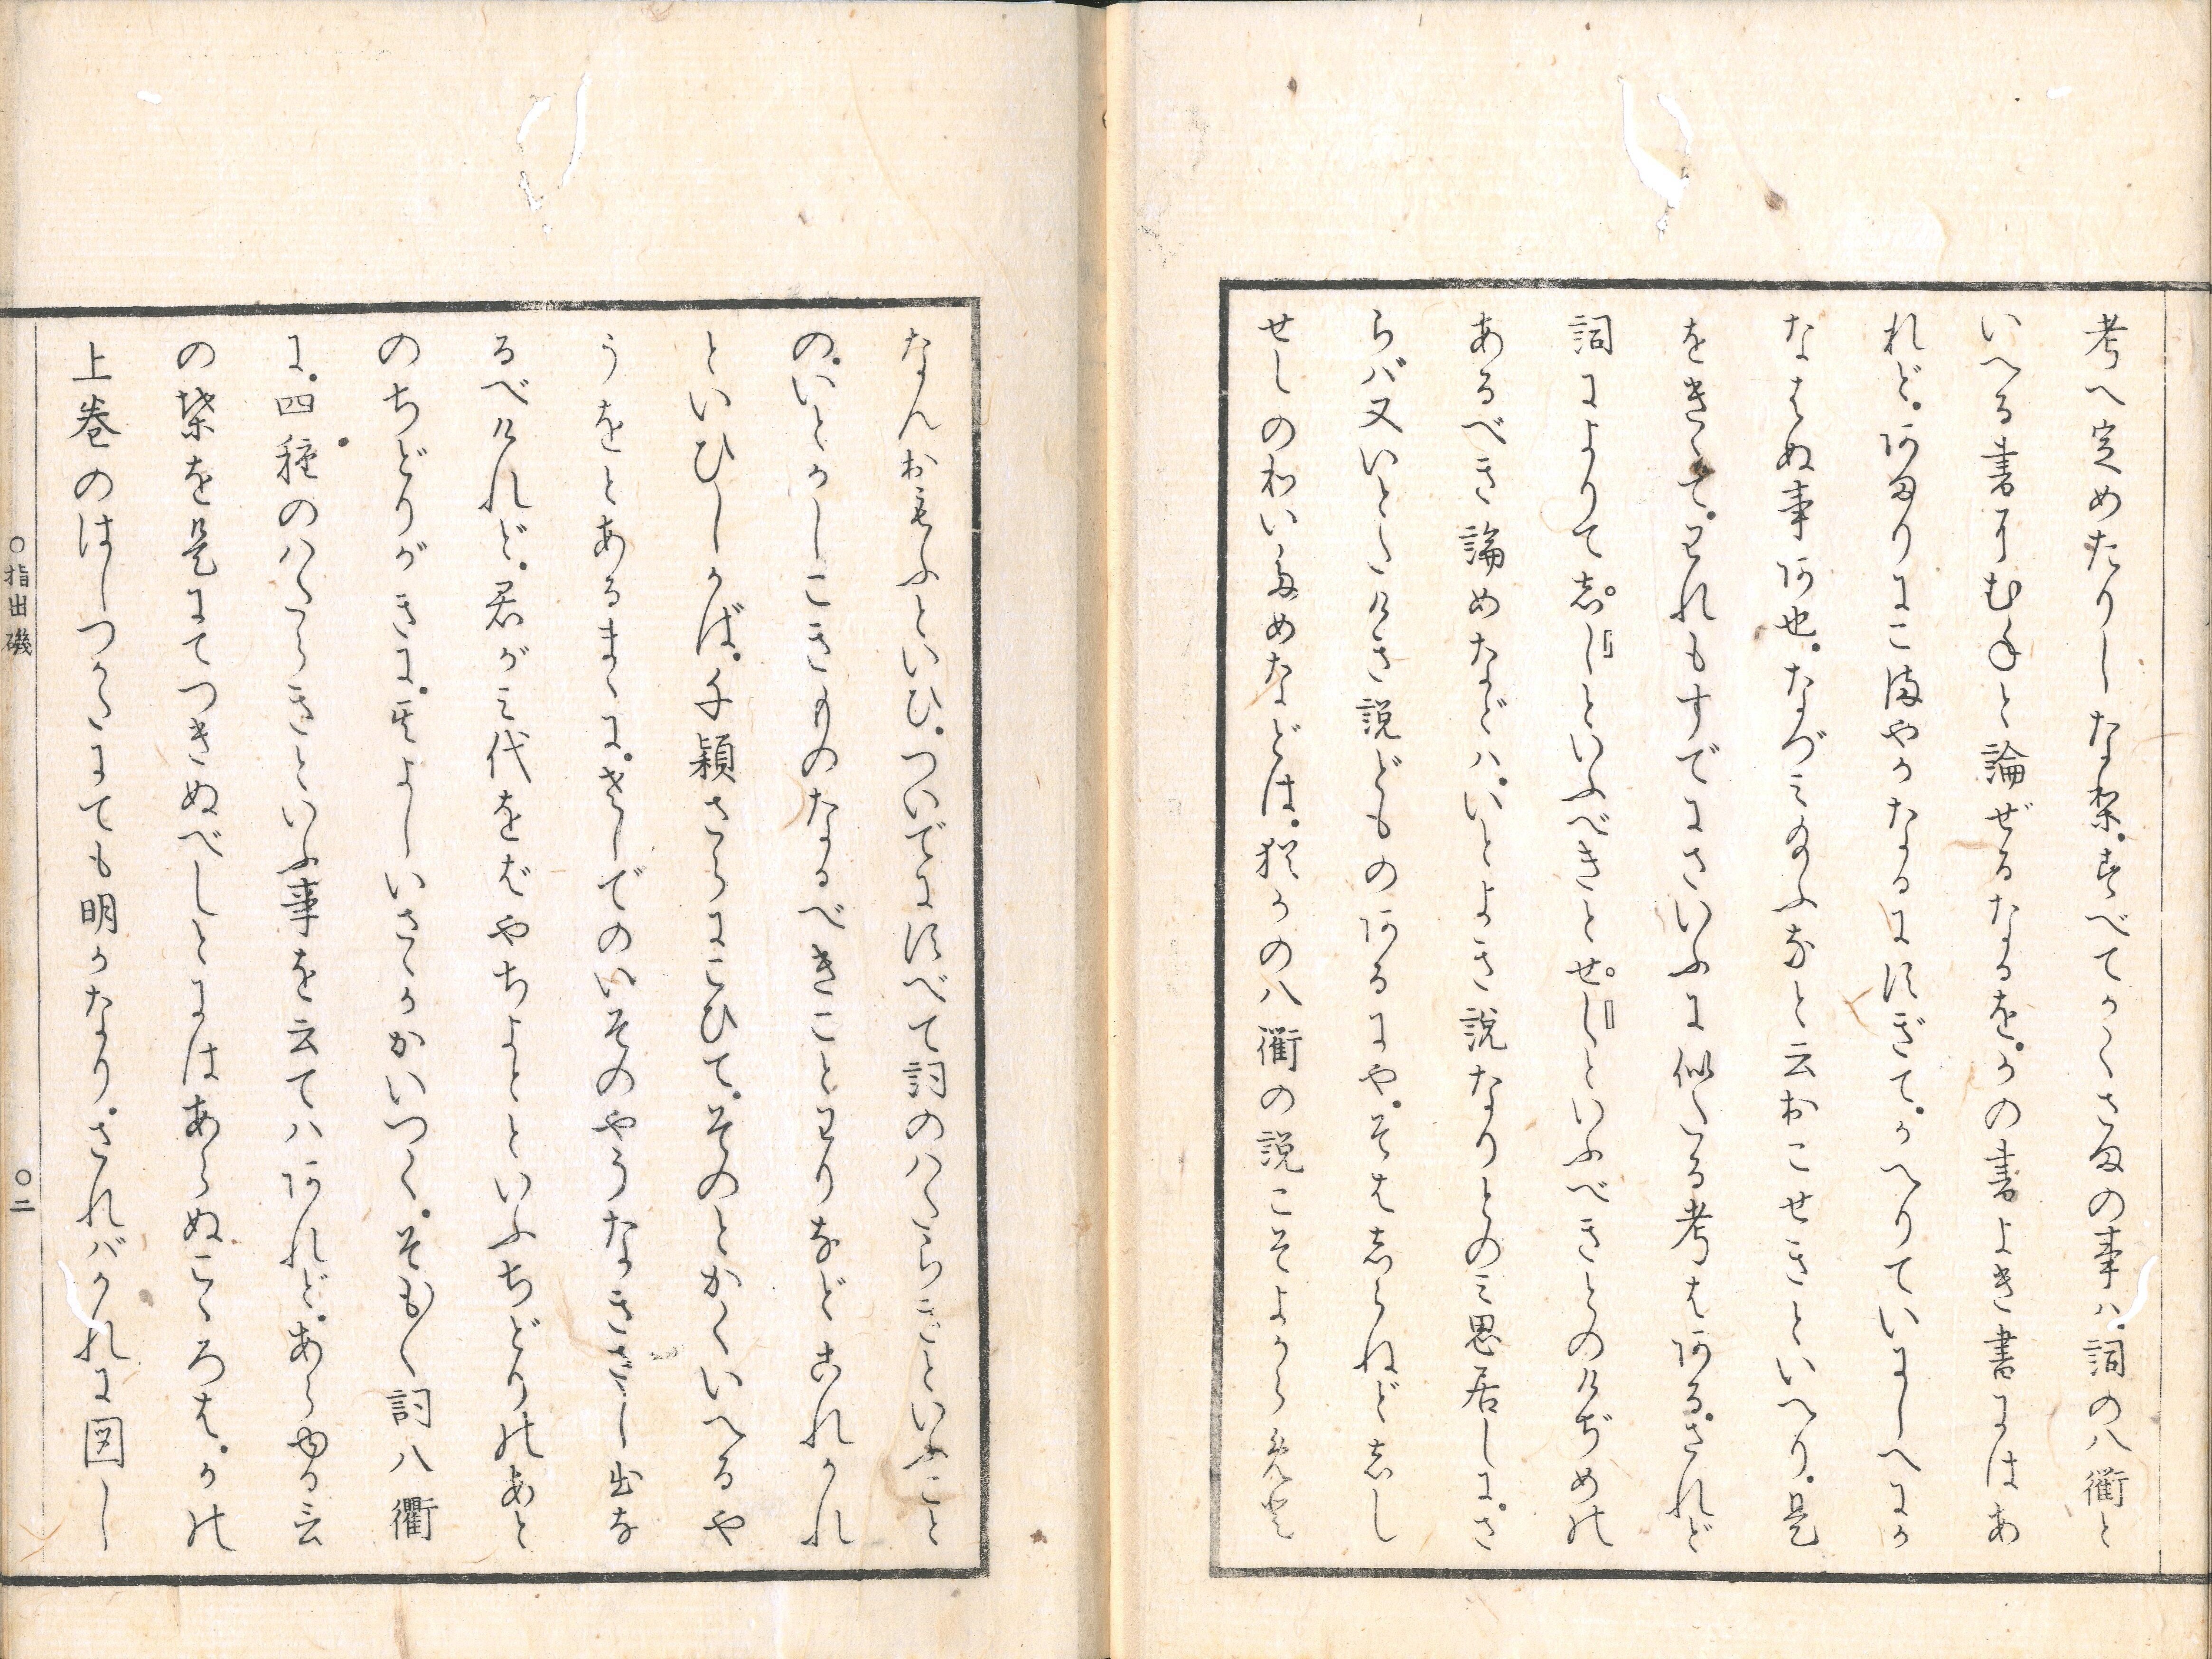 考へ定めたりしなむ。すべてかくさまの事は。詞の八衢と
いへる書にむねと論ぜるなるを。かの書よき書にはあ
れど。あまりにこまやかなるにすぎて。かへりていにしへにか
なはぬ事あ也。なづみ給ふなと云おこせきといへり。是
をきゝて。われもすでにさいふに似たる考はある。されど
詞によりて志しといふべきとせしといふべきとのけぢめの
あるべき論めなどハ。いとよき説なりとのミ思居しに。さ
らバ又いとたけき説どものあるにや。そは志らねど志し
せしのわいためなどは。猶かの八衢の説こそよからめと
なんおもふといひ。ついでにすべて詞のはたらきといふこと
の。いとかしこきものなるべきことわりなどこれかれ
といひしかば。千穎さらにこひて。そのとかくいへるや
うをとあるまゝに。さしでのいそのやうなきさざし出な
るべけれど。君がミ代をばやちよとといふちどりのあと
のちどりがきに。其よしいさゝかかいつく。そも〳〵詞八衢
に。四種のはたらきといふ事を云てハあれど。あらゆる言
の葉を是にてつきぬべしとにはあらぬこゝろは。かの
上巻のはしつかたにても明かなり。されバかれに図し
〇指出磯
〇二